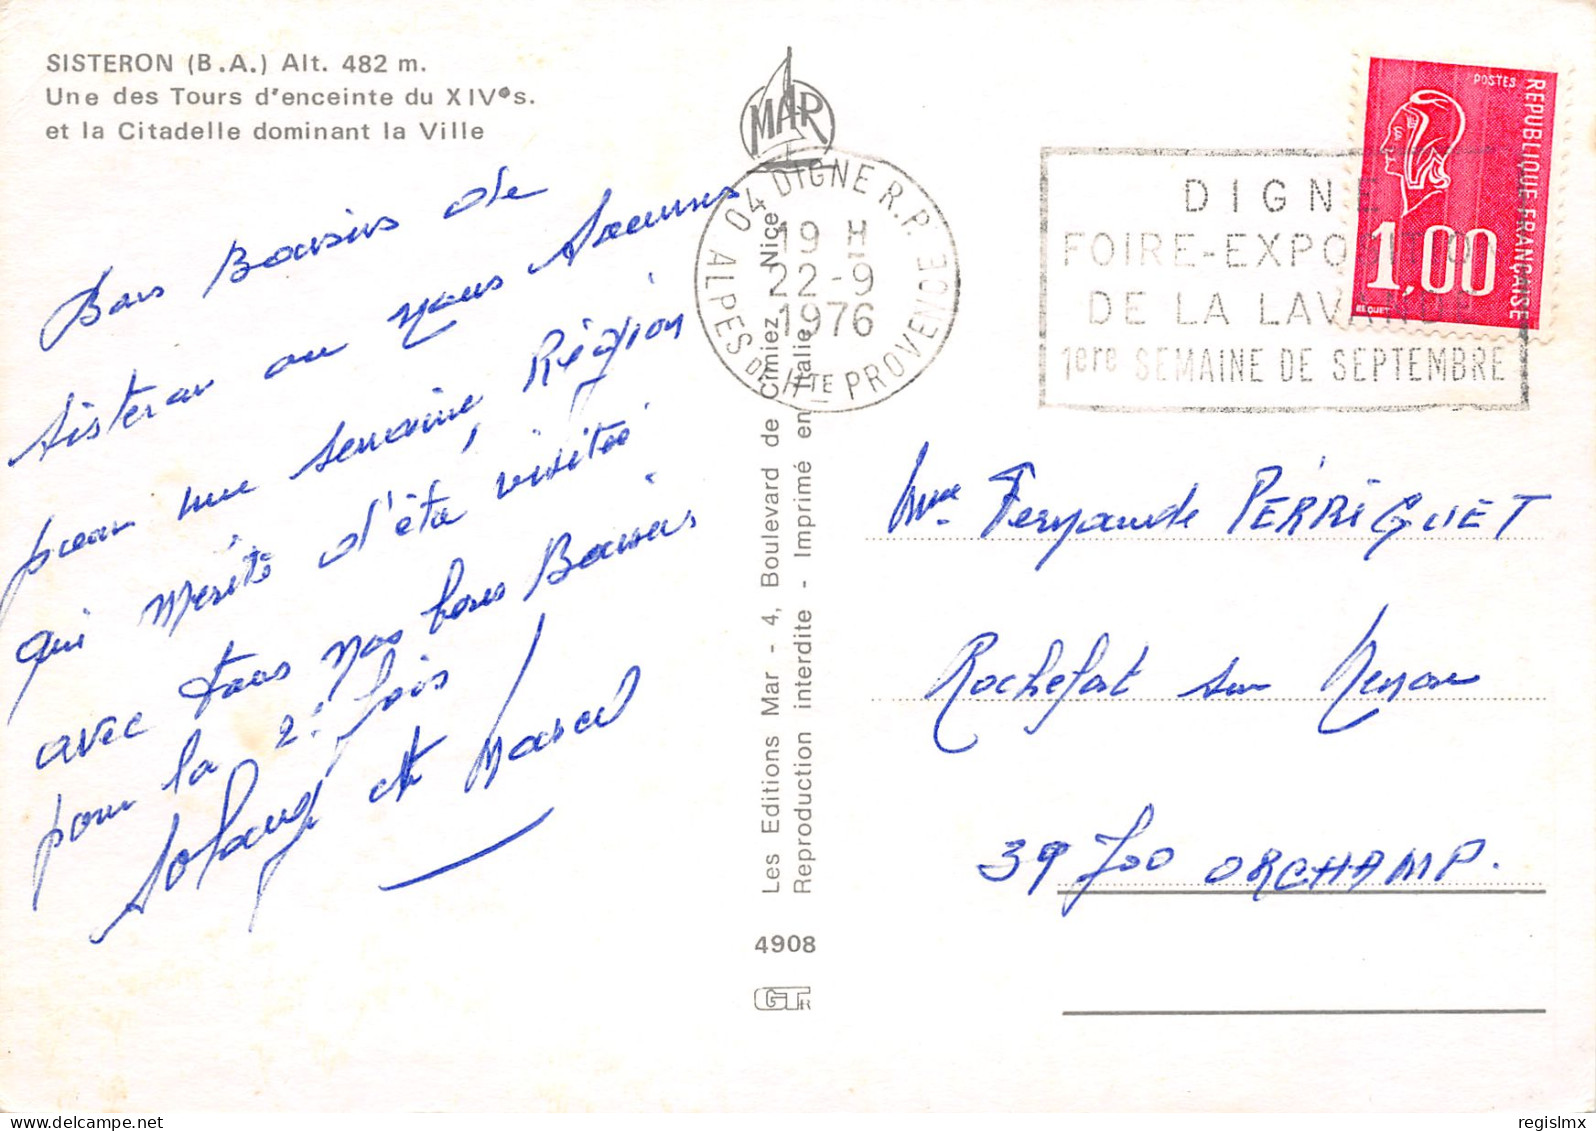 SISTERON (B.A.) Alt. 482 m.
Une des Tours d'enceinte du XIVe s.
et la Citadelle dominant la Ville
Bons Baisers de
Sisteron ou nous sommes
pour une semaine, Région
qui mérite d'être visitée
avec tous nos bons Baisers
pour la 2e fois
Solange et Marcel
MAR
04 DIGNE R.P.
19 H
22-9
1976
ALPES DE HTE PROVENCE
DIGNE
FOIRE-EXPOSITION
DE LA LAVANDE
1ere SEMAINE DE SEPTEMBRE
POSTES
REPUBLIQUE FRANÇAISE
1,00
BEQUET
Les Editions Mar - 4, Boulevard de Cimiez, Nice
Reproduction interdite - Imprimé en Italie
4908
GTR
Mme Fernande PERRIGUET
Rochefort sur Nenon
39700 ORCHAMP.
regislmx